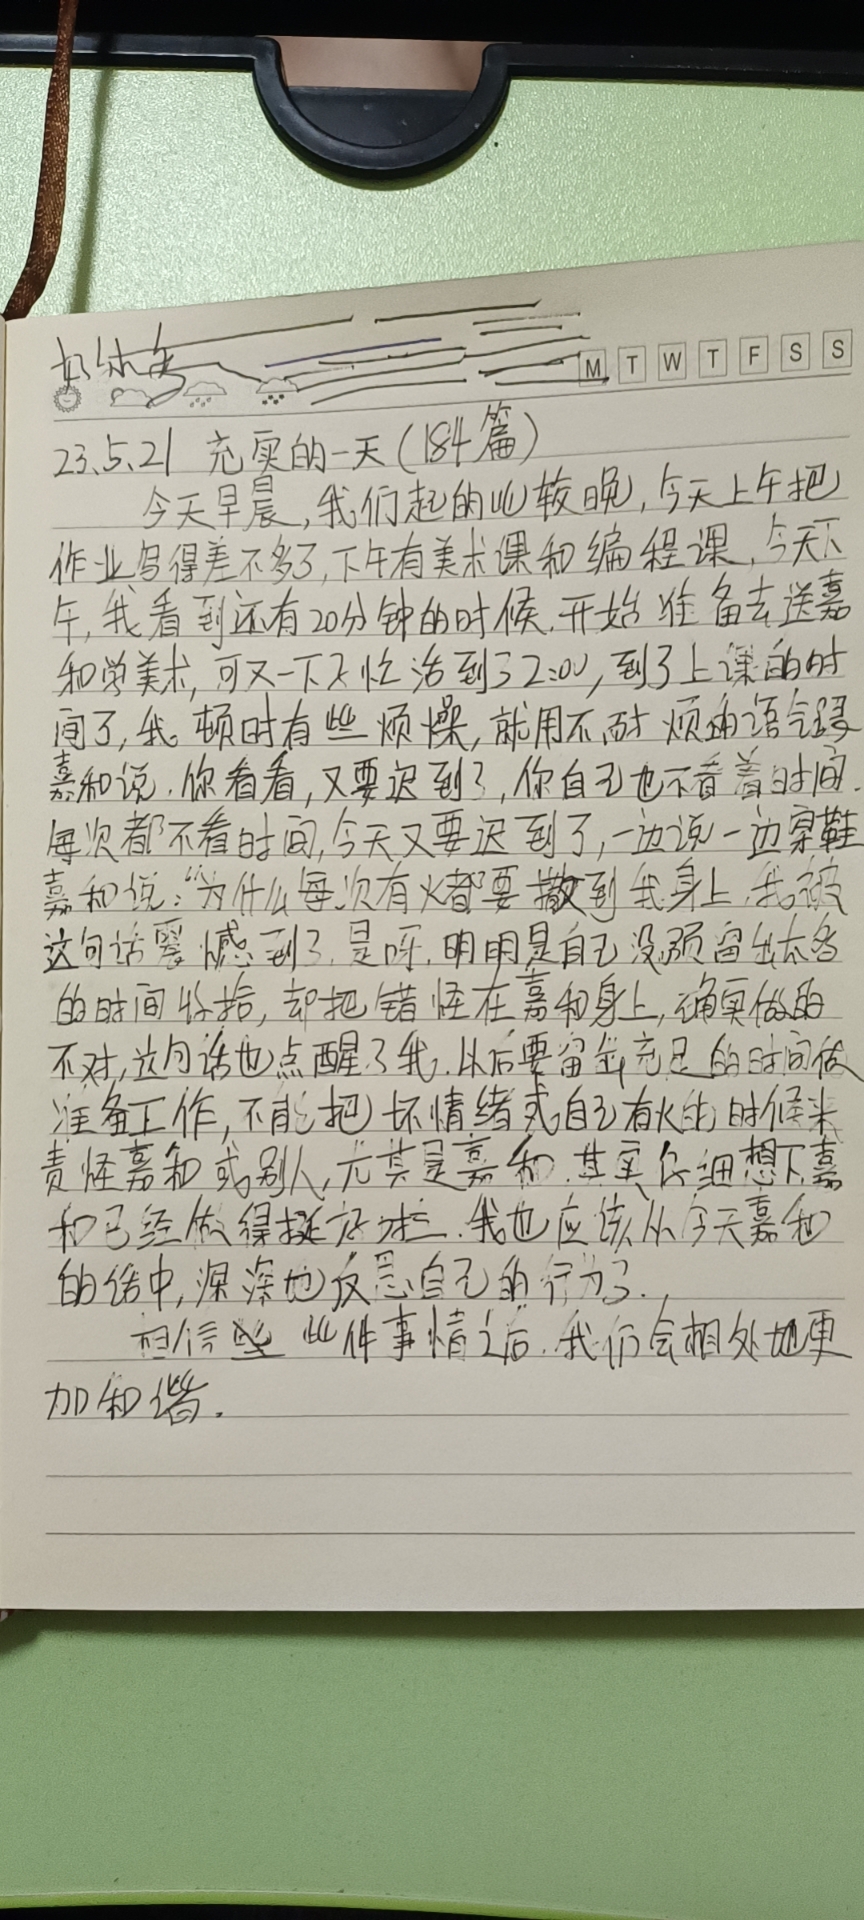 M T W T F S S
23.5.21 充实的一天(184篇)
今天早晨,我们起的比较晚,今天上午把
作业写得差不多了,下午有美术课和编程课,今天下
午,我看到还有20分钟的时候,开始准备去送嘉
和学美术,可又一下子忙活到了2:00,到了上课的时
间了,我顿时有些烦燥,就用不耐烦的语气跟
嘉和说,你看看,又要迟到了,你自己也不看着时间.
每次都不看时间,今天又要迟到了,一边说一边穿鞋
嘉和说:“为什么每次有火都要撒到我身上,我被
这句话震憾到了,是呀,明明是自己没预留出太多
的时间收拾,却把错怪在嘉和身上,确实做的
不对,这句话也点醒了我,以后要留出充足的时间做
准备工作,不能把坏情绪或自己有火的时候来
责怪嘉和或别人,尤其是嘉和,其实仔细想下,嘉
和已经做得挺好啦,我也应该从今天嘉和
的话中,深深地反思自己的行为了.
相信些 此件事情之后,我们会相处地更
加和谐.